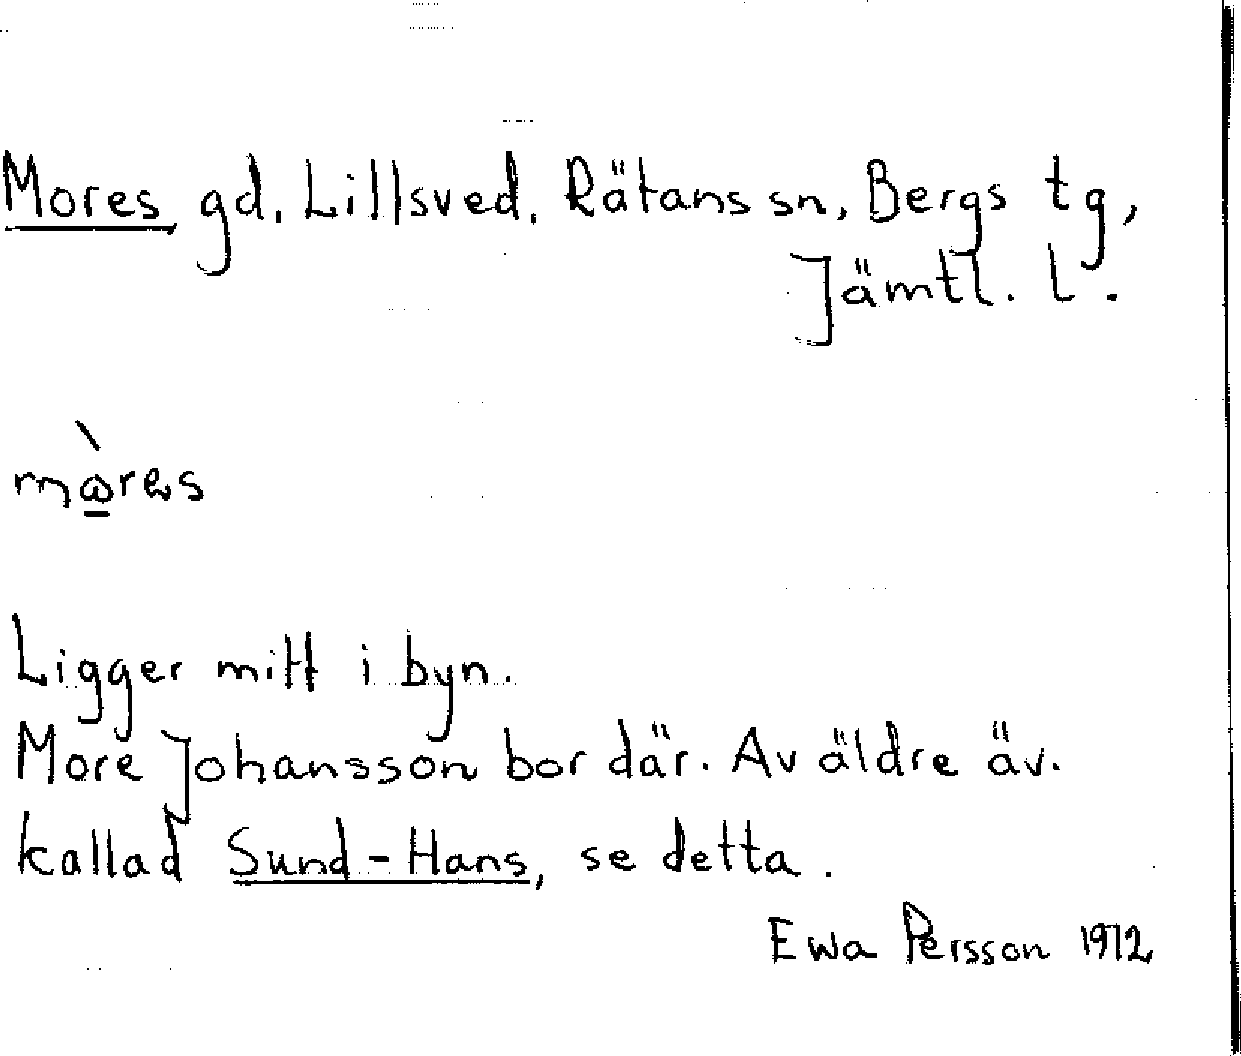 Mores, gd. Lillsved. Rätans sn, Bergs tg,
Jämtl. l.
mɷ̀res
Ligger mitt i byn.
More Johansson bor där. Av äldre äv.
kallad Sund-Hans, se detta.
Ewa Persson 1972